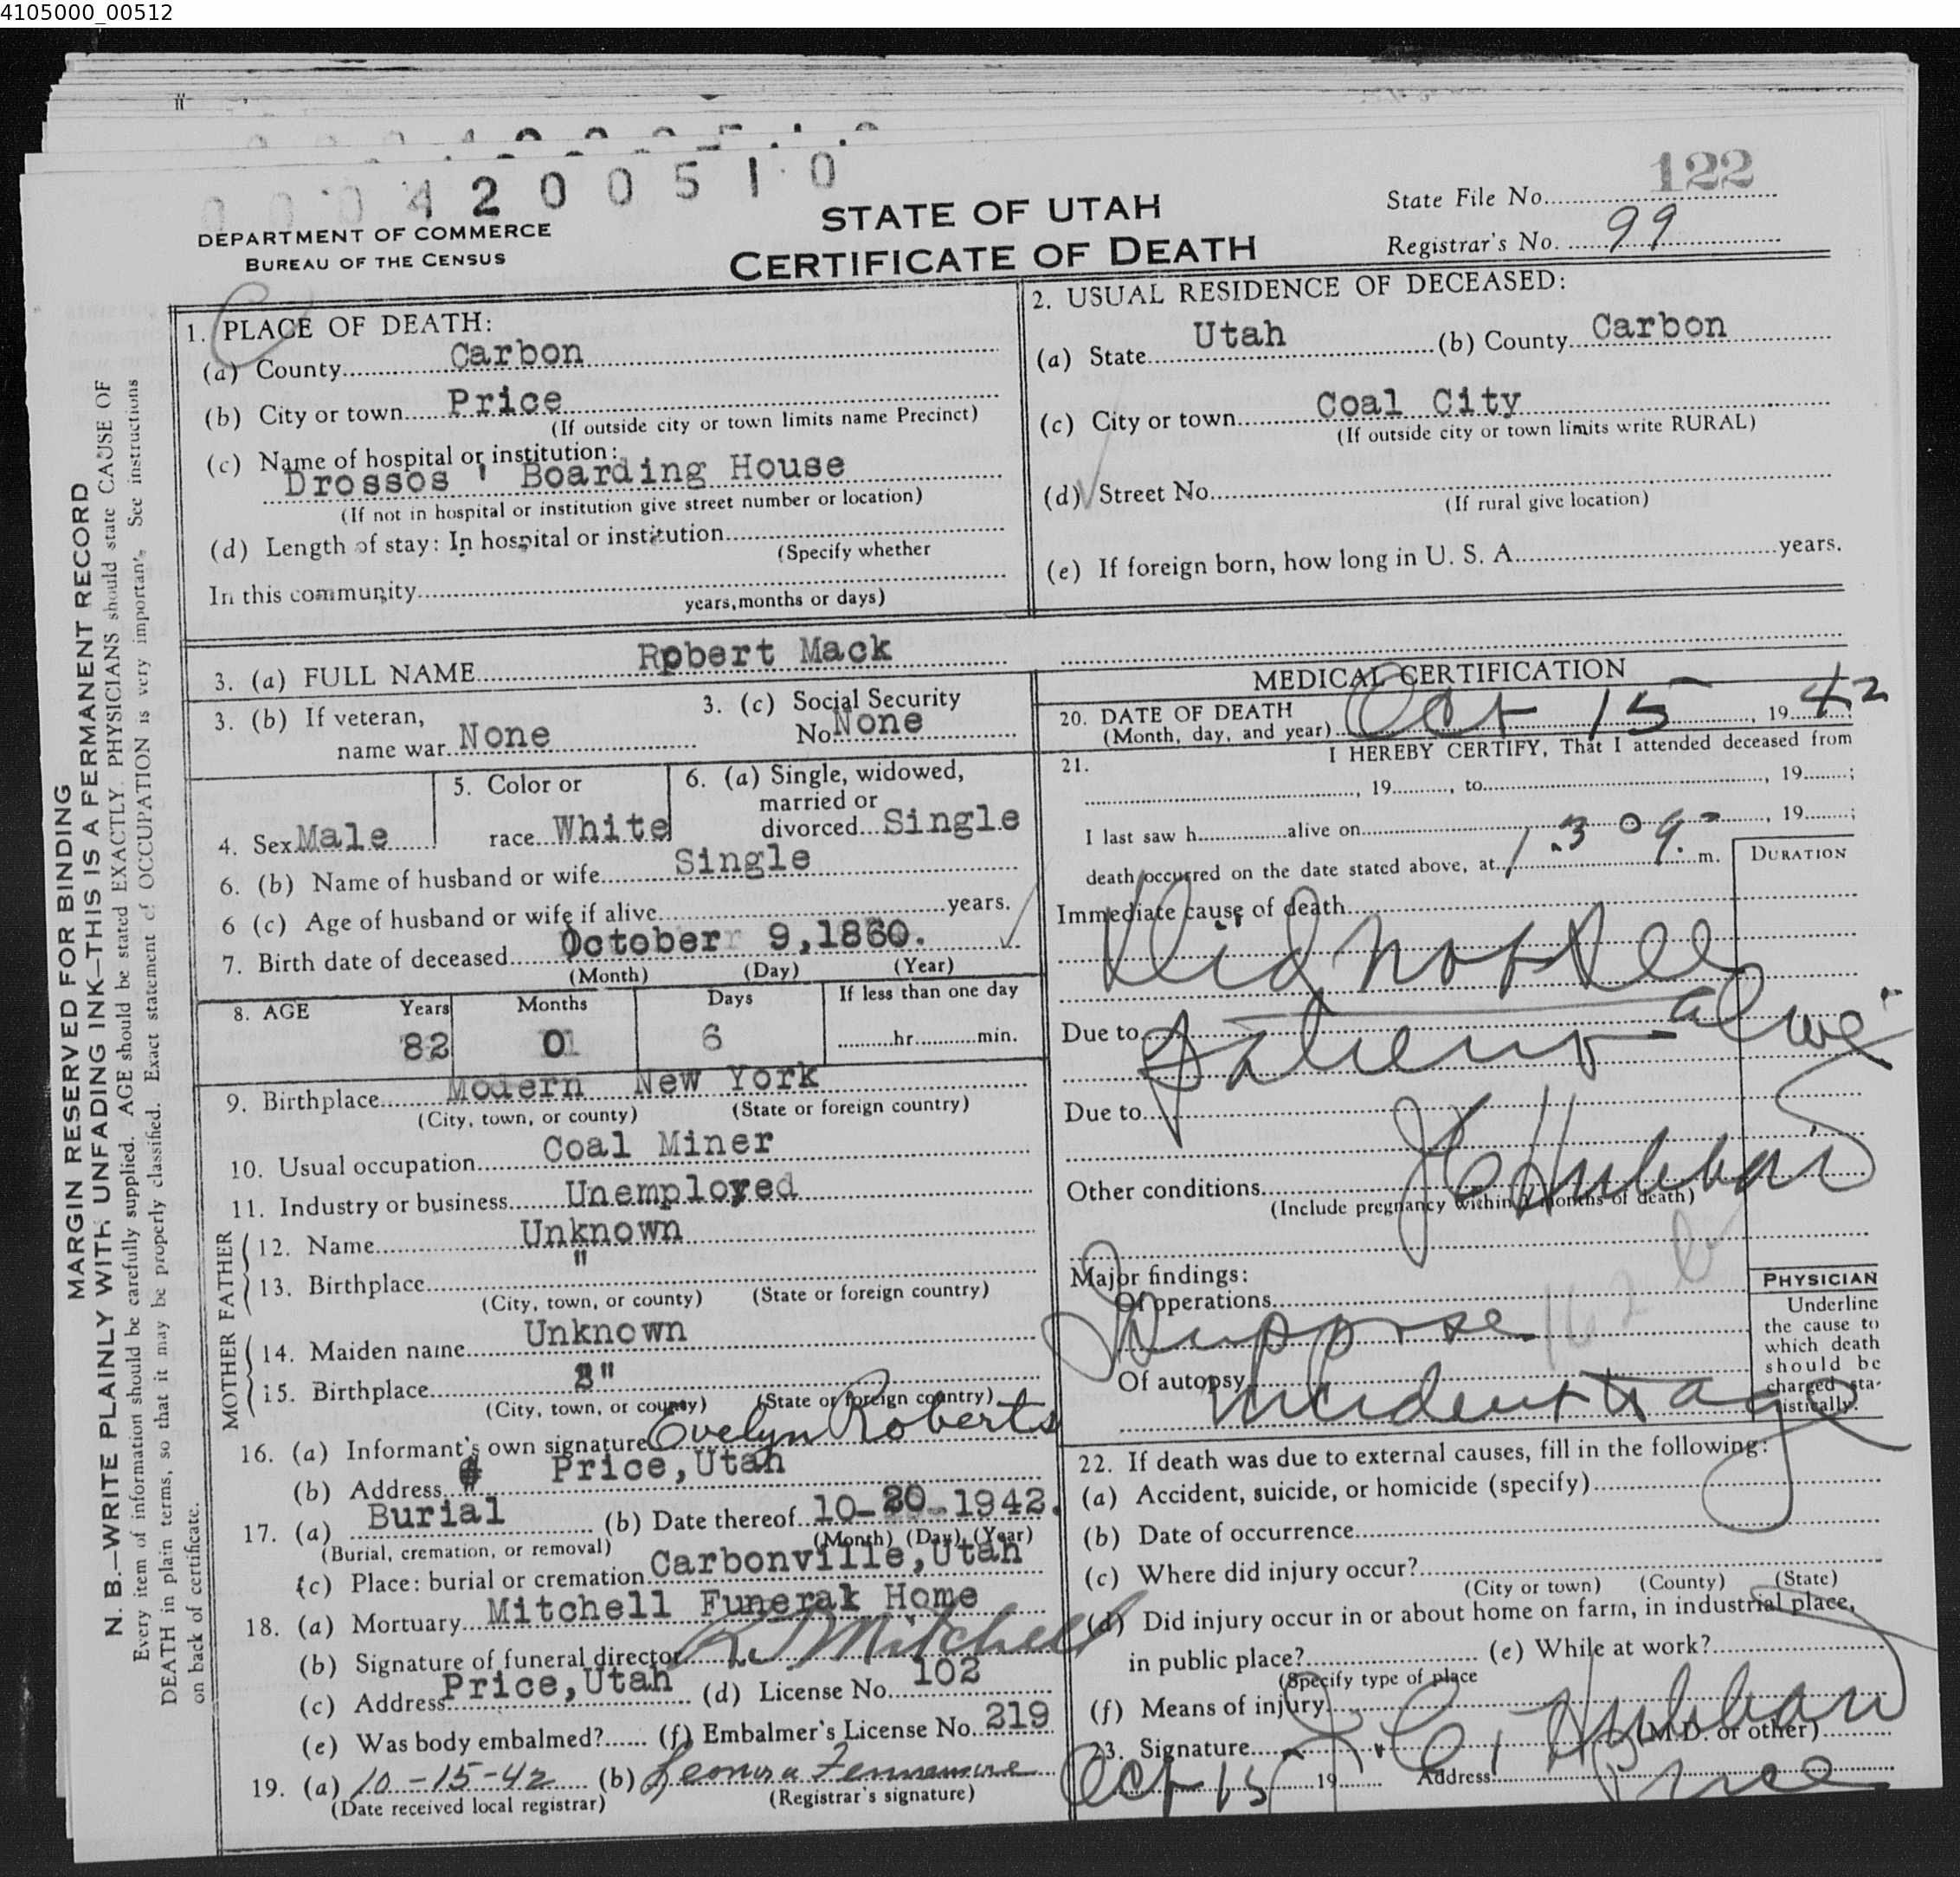 4105000_00512
0 0 0 4 2 0 0 5 1 0
DEPARTMENT OF COMMERCE
BUREAU OF THE CENSUS
STATE OF UTAH
CERTIFICATE OF DEATH
State File No. 122
Registrar's No. 99
MARGIN RESERVED FOR BINDING
N. B.—WRITE PLAINLY WITH UNFADING INK—THIS IS A PERMANENT RECORD
Every item of information should be carefully supplied. AGE should be stated EXACTLY. PHYSICIANS should state CAUSE OF
DEATH in plain terms, so that it may be properly classified. Exact statement of OCCUPATION is very important. See instructions
on back of certificate.
1. PLACE OF DEATH:
(a) County Carbon
(b) City or town Price
(If outside city or town limits name Precinct)
(c) Name of hospital or institution:
Drossos ' Boarding House
(If not in hospital or institution give street number or location)
(d) Length of stay: In hospital or institution
(Specify whether
In this community
years, months or days)
2. USUAL RESIDENCE OF DECEASED:
(a) State Utah (b) County Carbon
(c) City or town Coal City
(If outside city or town limits write RURAL)
(d) Street No.
(If rural give location)
(e) If foreign born, how long in U. S. A. years.
3. (a) FULL NAME Robert Mack
3. (b) If veteran,
name war None
3. (c) Social Security
No. None
4. Sex Male
5. Color or
race White
6. (a) Single, widowed,
married or
divorced Single
6. (b) Name of husband or wife Single
6 (c) Age of husband or wife if alive years.
7. Birth date of deceased October 9,1860.
(Month) (Day) (Year)
8. AGE Years Months Days If less than one day
82 0 6 hr. min.
9. Birthplace Modern New York
(City, town, or county) (State or foreign country)
10. Usual occupation Coal Miner
11. Industry or business Unemployed
FATHER
12. Name Unknown
13. Birthplace "
(City, town, or county) (State or foreign country)
MOTHER
14. Maiden name Unknown
15. Birthplace "
(City, town, or county) (State or foreign country)
16. (a) Informant's own signature Evelyn Roberts
(b) Address Price,Utah
17. (a) Burial (b) Date thereof 10-20-1942.
(Burial, cremation, or removal) (Month) (Day) (Year)
(c) Place: burial or cremation Carbonville,Utah
18. (a) Mortuary Mitchell Funerak Home
(b) Signature of funeral director Mitchell
(c) Address Price,Utah (d) License No. 102
(e) Was body embalmed? (f) Embalmer's License No. 219
19. (a) 10-15-42 (b) Leonora Fennemore
(Date received local registrar) (Registrar's signature)
MEDICAL CERTIFICATION
20. DATE OF DEATH
(Month, day, and year) Oct 15, 1942;
21. I HEREBY CERTIFY, That I attended deceased from
, 19 , to , 19 ;
I last saw h alive on , 19 ;
death occurred on the date stated above, at 1.30 m.
DURATION
Immediate cause of death
Did not see
Due to Patient alive
Due to
J C Hubbard
Other conditions
(Include pregnancy within 3 months of death)
Major findings:
Of operations
Suppose 162 b
Of autopsy
incident to age
PHYSICIAN
Underline
the cause to
which death
should be
charged sta-
tistically.
22. If death was due to external causes, fill in the following:
(a) Accident, suicide, or homicide (specify)
(b) Date of occurrence
(c) Where did injury occur?
(City or town) (County) (State)
(d) Did injury occur in or about home on farm, in industrial place,
in public place? (e) While at work?
(Specify type of place
(f) Means of injury
23. Signature J. C. Hubbard (M.D. or other)
Oct 15 19 Address Price